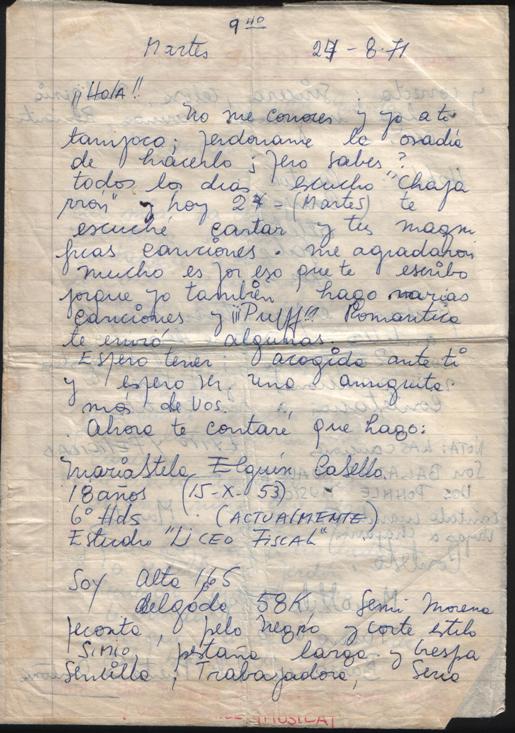 9 40
Martes 27 - 8 - 71
¡¡Hola!!
No me conoces y yo a ti
tampoco; perdoname la osadia
de hacerlo; pero sabes?
todos los dias escucho "Chapa
rrón" y hoy 27 = (Martes) te
escuché cantar y tus magni
ficas canciones. me agradaron
mucho es por eso que te escribo
porque yo también hago varias
canciones y ¡¡¡Puff!! Romantica
te envió algunas.
Espero tener; acogida ante ti
y espero ser una amiguita
más de vos.
Ahora te contaré, que hago:
MariaStela Elguin Casella.
18 años (15-X-53)
6º Hds (ACTUALMENTE)
Estudio "LICEO FISCAL"
Soy Alta 1,65
delgada 58K Semi Morena
peconta, pelo negro y corte estilo
SIMIO, pestaña larga y crespa
Sencilla; Trabajadora, Seria